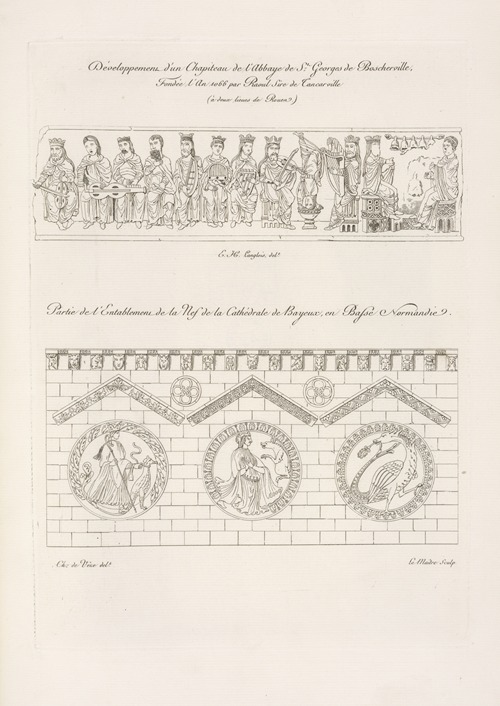 Développement d'un Chapiteau de l'Abbaye de St. Georges de Bocherville,
Fondée l'An 1066 par Raoul Sire de Tancarville
(à deux lieues de Rouen.)
E. H. Langlois, del.t
Partie de l'Entablement de la Nef de la Cathédrale de Bayeux, en Basse Normandie.
Ch. de Vèze del.t
Le Maître Sculp.